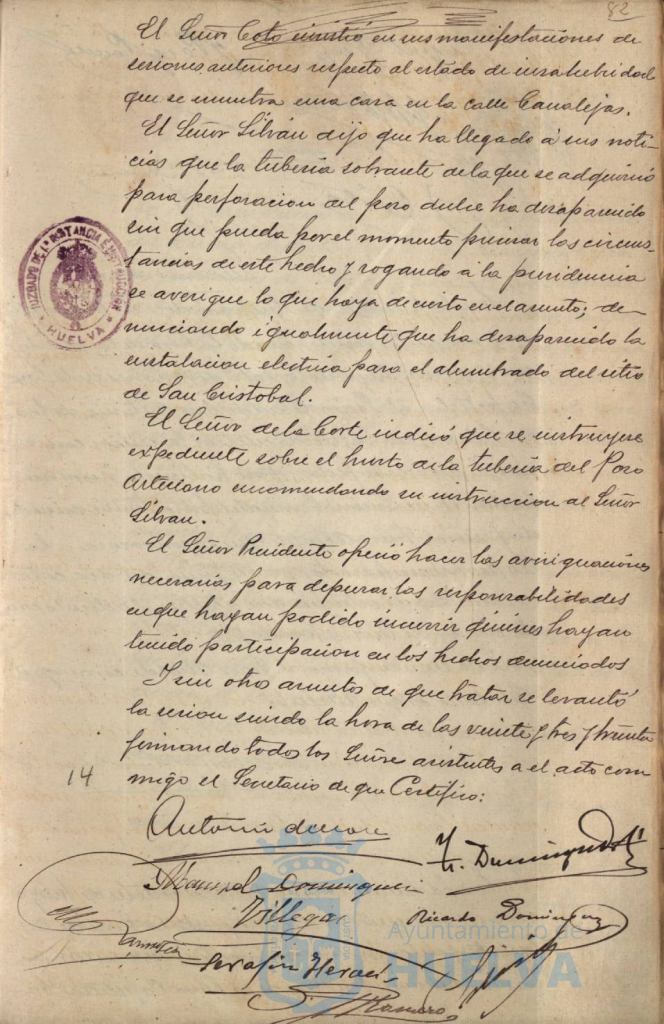 82
El Señor Coto insistió en sus manifestaciones de
sesiones anteriores respecto al estado de insalubridad
que se encuentra una casa en la calle Canalejas.
El Señor Silván dijo que ha llegado á sus noti-
cias que la tuberia sobrante de la que se adquirió
para perforacion del pozo dulce ha desaparecido
sin que pueda por el momento precisar las circuns-
tancias de este hecho y rogando á la presidencia
se averigue lo que haya de cierto en el asunto; de-
nunciando igualmente que ha desaparecido la
instalacion electrica para el alumbrado del sitio
de San Cristobal.
El Señor de la Corte indicó que se instruyese
expediente sobre el hurto de la tuberia del Pozo
Artesiano encomendando su instruccion al Señor
Silván.
El Señor Presidente ofreció hacer las averiguaciones
necesarias para depurar las responsabilidades
en que hayan podido incurrir quienes hayan
tenido participacion en los hechos denunciados
Y sin otros asuntos de que tratar se levantó
la sesion siendo la hora de las veinte y tres y treinta
firmando todos los Señores asistentes a el acto con-
migo el Secretario de que Certifico:
JUZGADO DE 1ª INSTANCIA E INSTRUCCION
HUELVA
14
Antonio
Manuel Dominguez
Villegas
Ricardo Dominguez
Serafin
Romero
Ayuntamiento de
HUELVA